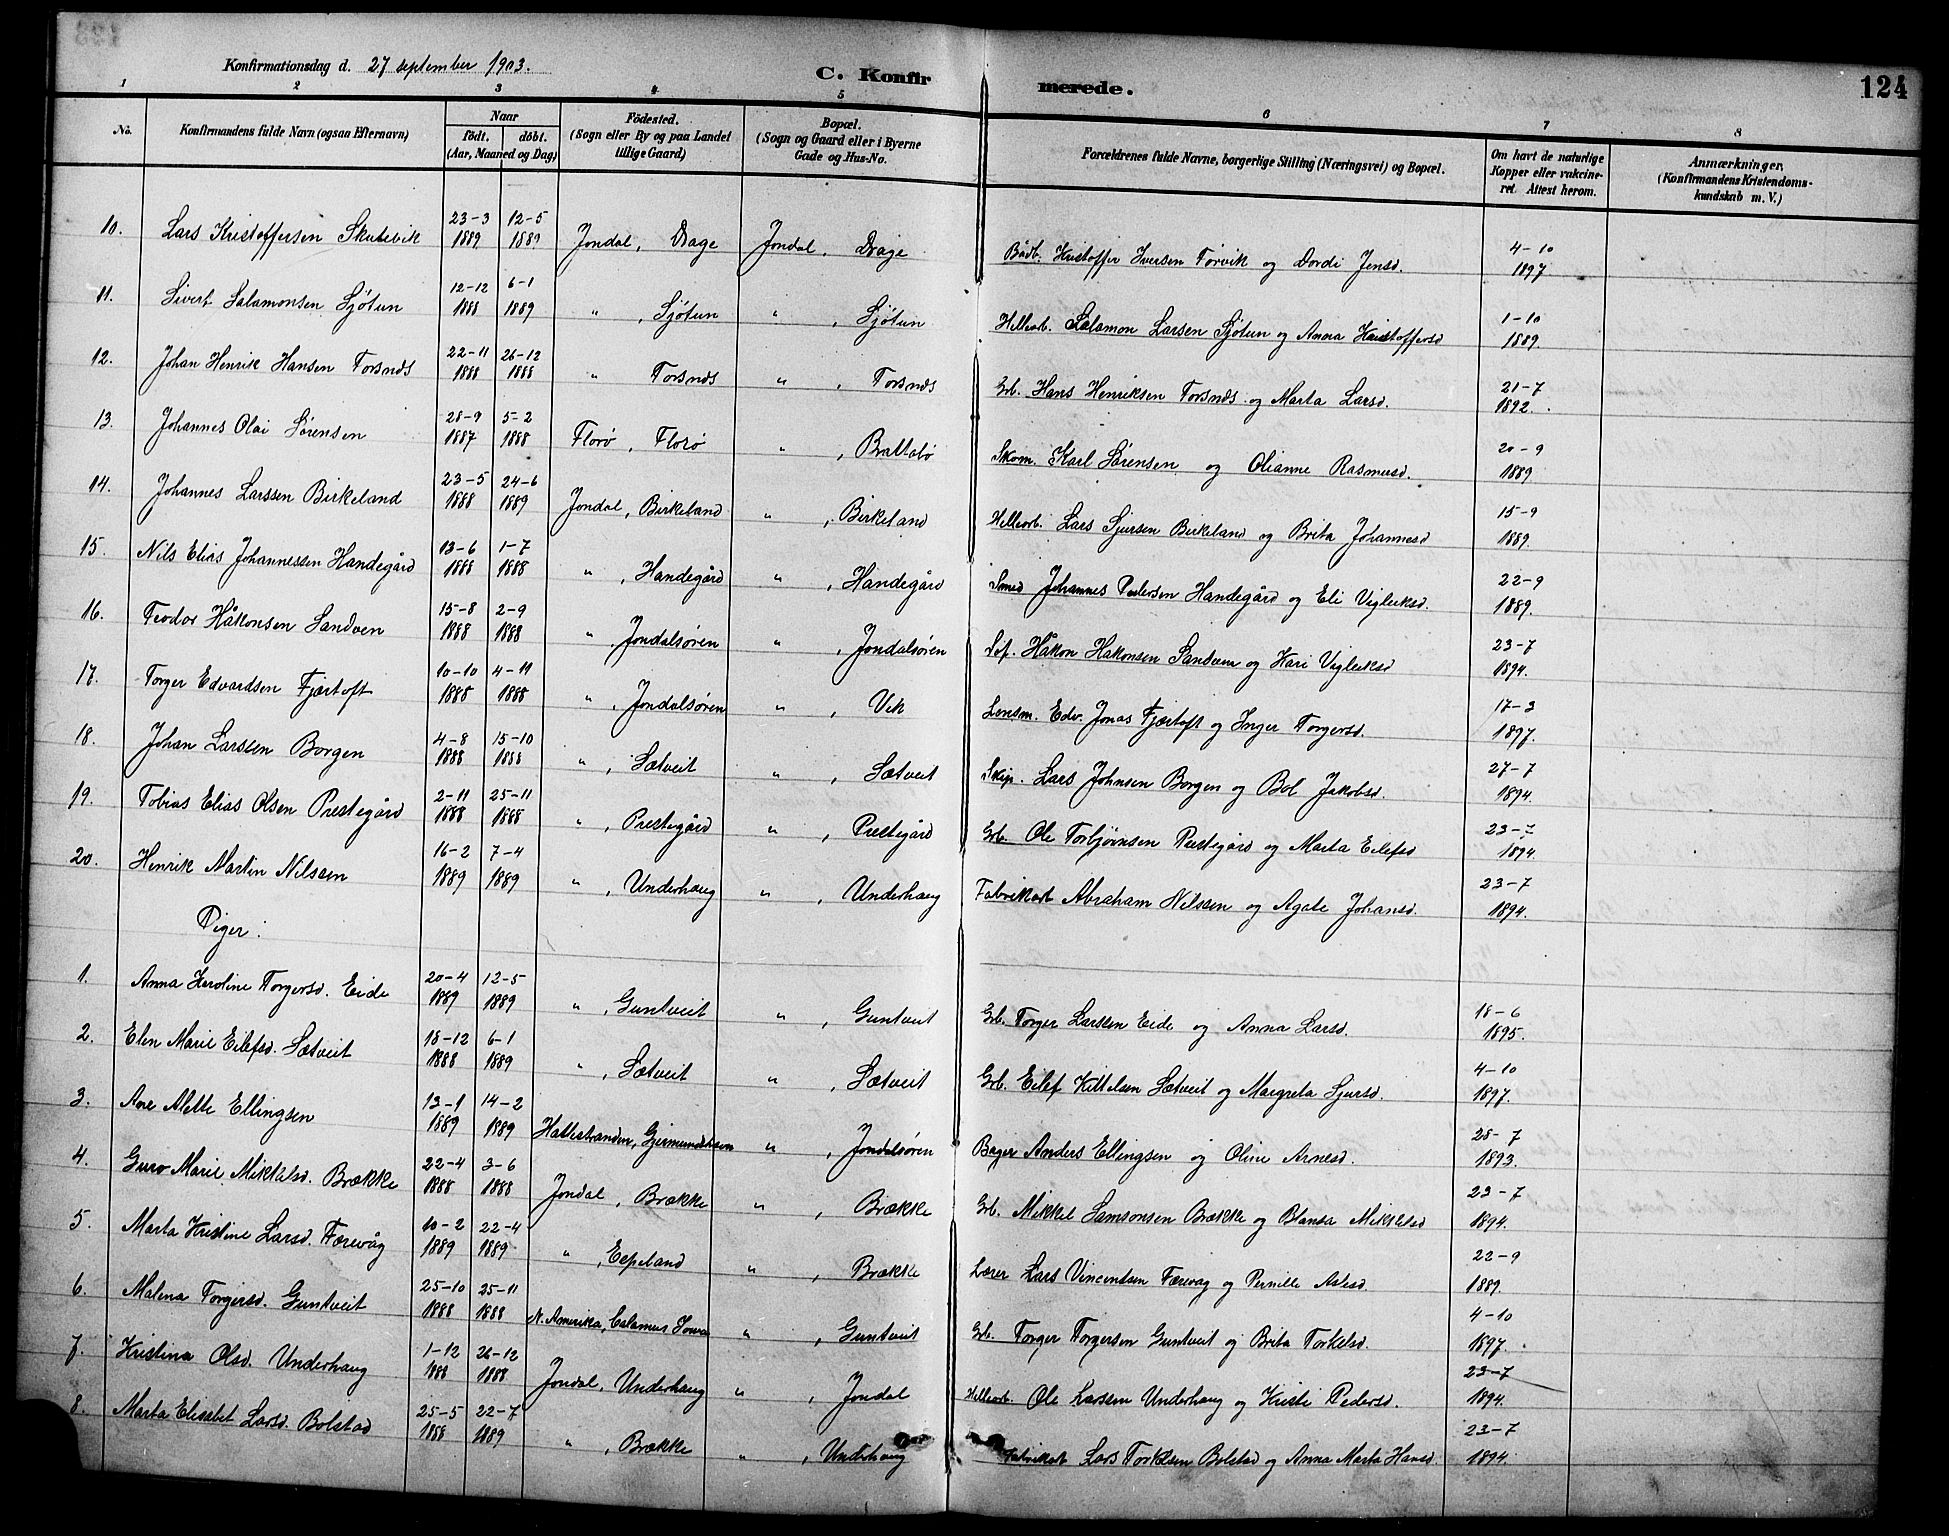 Konfirmationsdag d. 27 september 1903.
C. Konfirmerede.
124
1 2 3 4 5 6 7 8
No. Konfirmandens fulde Navn (ogsaa Efternavn) Naar födt. döbt. (Aar, Maaned og Dag) Födested. (Sogn eller By og paa Landet tillige Gaard) Bopæl. (Sogn og Gaard eller i Byerne Gade og Hus-No. Forældrenes fulde Navne, borgerlige Stilling (Næringsvei) og Bopæl. Om havt de naturlige Kopper eller vakcineret. Attest herom. Anmærkninger, (Konfirmandens Kristendomskundskab m. V.)
10. Lars Kristoffersen Skutevik 23-3 1889 12-5 1889 Jondal, Drage Jondal, Drage Bådb. Kristoffer Iversen Torvik og Dordi Jensd. 4-10 1897
11. Sivert Salamonsen Sjötun 12-12 1888 6-1 1889 " , Sjötun " , Sjötun Hellearb. Salamon Larsen Sjötun og Anna Kristoffersd 1-10 1889
12. Johan Henrik Hansen Torsnæs 22-11 1888 26-12 1888 " Torsnæs " , Torsnæs Grb. Hans Henriksen Torsnæs og Marta Larsd. 21-7 1892.
13. Johannes Olai Sørensen 28-9 1887 5-2 1888 Florø, Florø " , Brattabø Skom. Karl Sørensen og Olianne Rasmusd. 20-9 1889
14. Johannes Larssen Birkeland 23-5 1888 24-6 1889 Jondal, Birkeland " , Birkeland Hellearb. Lars Sjursen Birkeland og Brita Johannesd 15-9 1889.
15. Nils Elias Johannessen Handegård 13-6 1888 1-7 1888 " , Handegård " , Handegård Smed Johannes Pedersen Handegård og Eli Vigleiksd. 22-9 1889.
16. Teodor Håkonsen Sandven 15-8 1888 2-9 1888 " , Jondalsøren " , Jondalsøren Sof. Håkon Håkonsen Sandven og Kari Vigleiksd 23-7 1894.
17. Torger Edvardsen Fjærtoft 10-10 1888 4-11 1888 " , Jondalsøren " , Vik Lensm. Edv. Jonas Fjærtoft og Inger Torgersd. 17-3 1897.
18. Johan Larssen Borgen 4-8 1888 15-10 1888 " , Sætveit " , Sætveit Skip. Lars Johnsen Borgen og Bol Jakobsd. 27-7 1894.
19. Tobias Elias Olsen Prestegård 2-11 1888 25-11 1888 " , Prestegård " , Prestegård Grb. Ole Torbjørnsen Prestegård og Marta Eilefsd 23-7 1894.
20. Henrik Martin Nilssen 16-2 1889 7-4 1889 " , Underhaug " , Underhaug Fabrikarb Abraham Nilssen og Agate Johansd. 23-7 1894.
Piger.
1. Anna Karoline Torgersd. Eide 20-4 1889 12-5 1889 " , Guntveit " , Guntveit Grb. Torger Larssen Eide og Anna Larsd. 18-6 1895.
2. Elen Marie Eilefsd. Sætveit 18-12 1888 6-1 1889 " , Sætveit " , Sætveit Grb. Eilef Kittelsen Sætveit og Margreta Sjursd. 4-10 1897.
3. Ane Alette Ellingsen 13-1 1889 14-2 1889 Hattestranden, Gjermundshavn " , Jondalsøren Bager Anders Ellingsen og Oline Arnesd. 28-7 1893.
4. Guro Marie Mikkelsd. Brække 22-4 1888 3-6 1888 Jondal, Brække " , Brække Grb. Mikkel Samsonsen Brække og Blansa Mikkelsd 23-7 1894.
5. Marta Kristine Larsd. Færevåg 10-2 1889 22-4 1889 " , Espeland " , Brække Lærer Lars Vincentsen Færevåg og Pernille Aslesd. 22-9 1889.
6. Malena Torgersd. Guntveit 25-10 1888 25-11 1888 N. Amerika, Calamus Iowa " , Guntveit Grb. Torger Torgersen Guntveit og Brita Torkelsd. 4-10 1897.
7. Kristina Olsd. Underhaug 1-12 1888 26-12 1888 Jondal, Underhaug " , Jondal Hellearb. Ole Larssen Underhaug og Kristi Pedersd. 23-7 1894.
8. Marta Elisabet Larsd. Bolstad 25-5 1888 22-7 1889 " , Brække " , Underhaug Fabrikarb Lars Torkelsen Bolstad og Anna Marta Hansd. 23-7 1894.